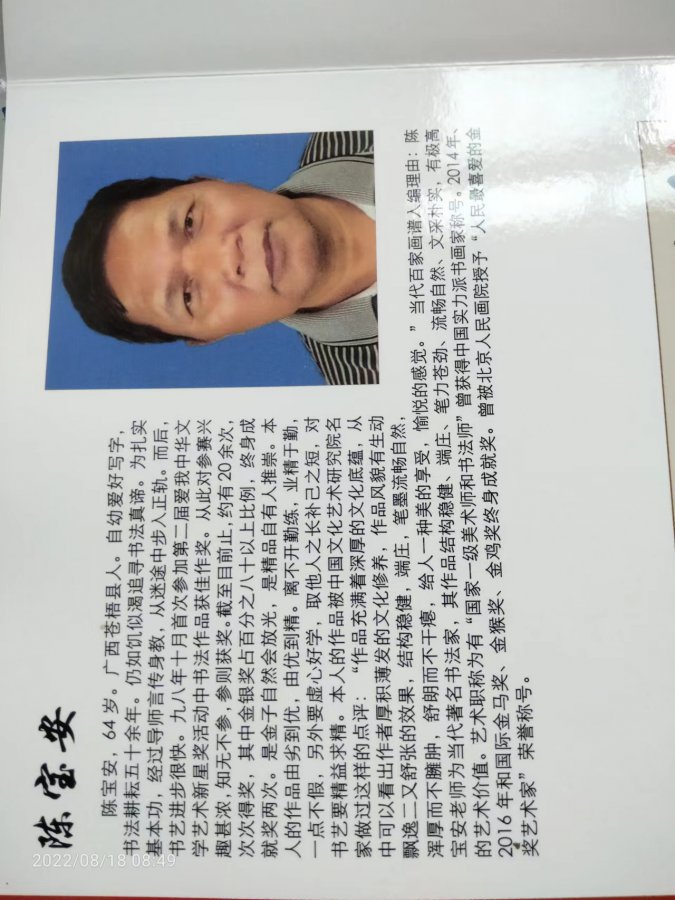 陈宝安
陈宝安，64岁。广西苍梧县人。自幼爱好写字，
书法耕耘五十余年。仍如饥似渴追寻书法真谛。为扎实
基本功，经过导师言传身教，从迷途中步入正轨。而后，
书艺进步很快。九八年十月首次参加第二届爱我中华文
学艺术新星奖活动中书法作品获佳作奖。从此对参赛兴
趣甚浓，知无不参，参则获奖。截至目前止，约有20余次，
次次得奖，其中金银奖占百分之八十以上比例，终身成
就奖两次。是金子自然会放光，是精品自有人推崇。本
人的作品由劣到优，由优到精。离不开勤练，业精于勤，
一点不假，另外要虚心好学，取他人之长补己之短，对
书艺要精益求精。本人的作品被中国文化艺术研究院名
家做过这样的点评：“作品充满着深厚的文化底蕴，从
中可以看出作者厚积薄发的文化修养，作品风貌有生动
飘逸二又舒张的效果，结构稳健，端庄，笔墨流畅自然，
浑厚而不臃肿，舒朗而不干瘪，给人一种美的享受，愉悦的感觉。”当代百家画谱入编理由：陈
宝安老师为当代著名书法家，其作品结构稳健、端庄、笔力苍劲、流畅自然、文采朴实，有极高
的艺术价值。艺术职称为有“国家一级美术师和书法师”曾获得中国实力派书画家称号。2014年、
2016年和国际金马奖、金猴奖、金鸡奖终身成就奖。曾被北京人民画院授予“人民最喜爱的金
奖艺术家”荣誉称号。
2022/08/18 08:49